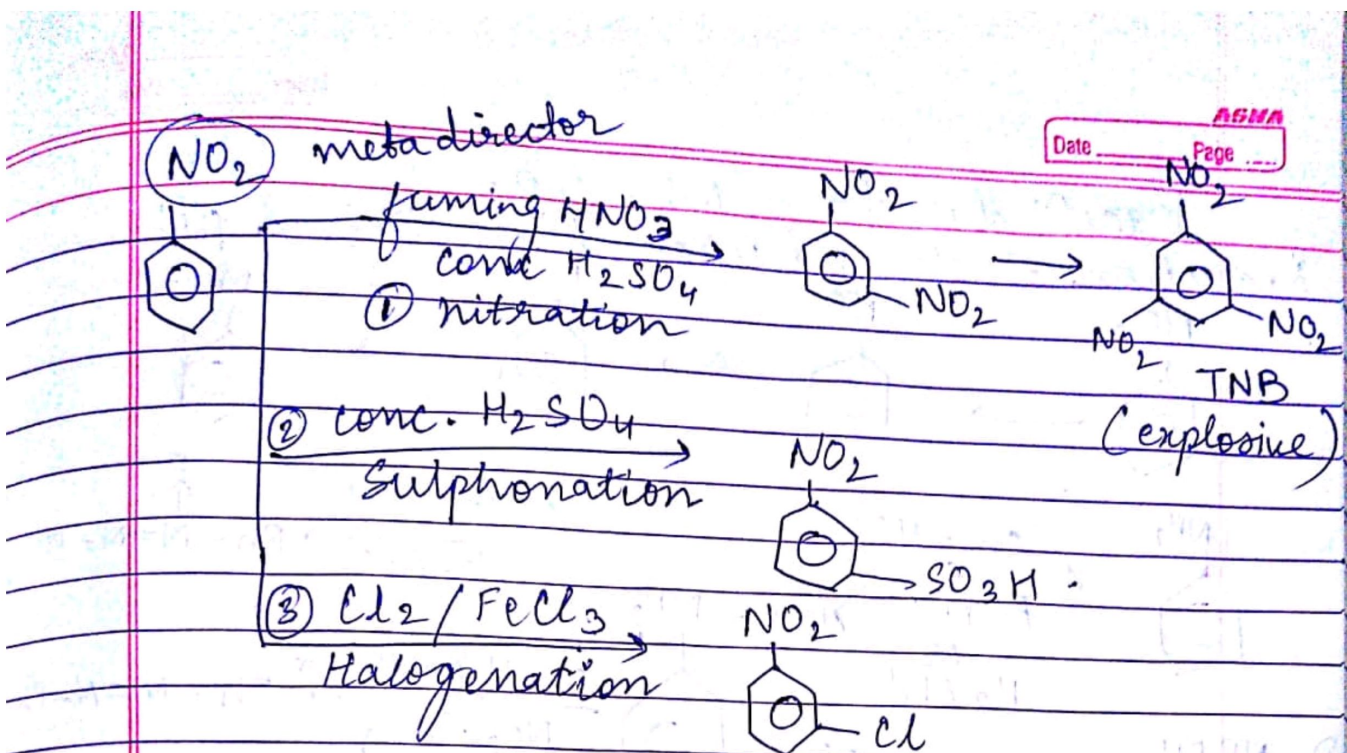 ASMA
Date Page
NO2 meta director
fuming HNO3
conc H2SO4
① nitration
NO2
NO2
NO2
NO2
NO2
TNB
(explosive)
② conc. H2SO4
Sulphonation
NO2
SO3H.
③ Cl2 / FeCl3
Halogenation
NO2
Cl